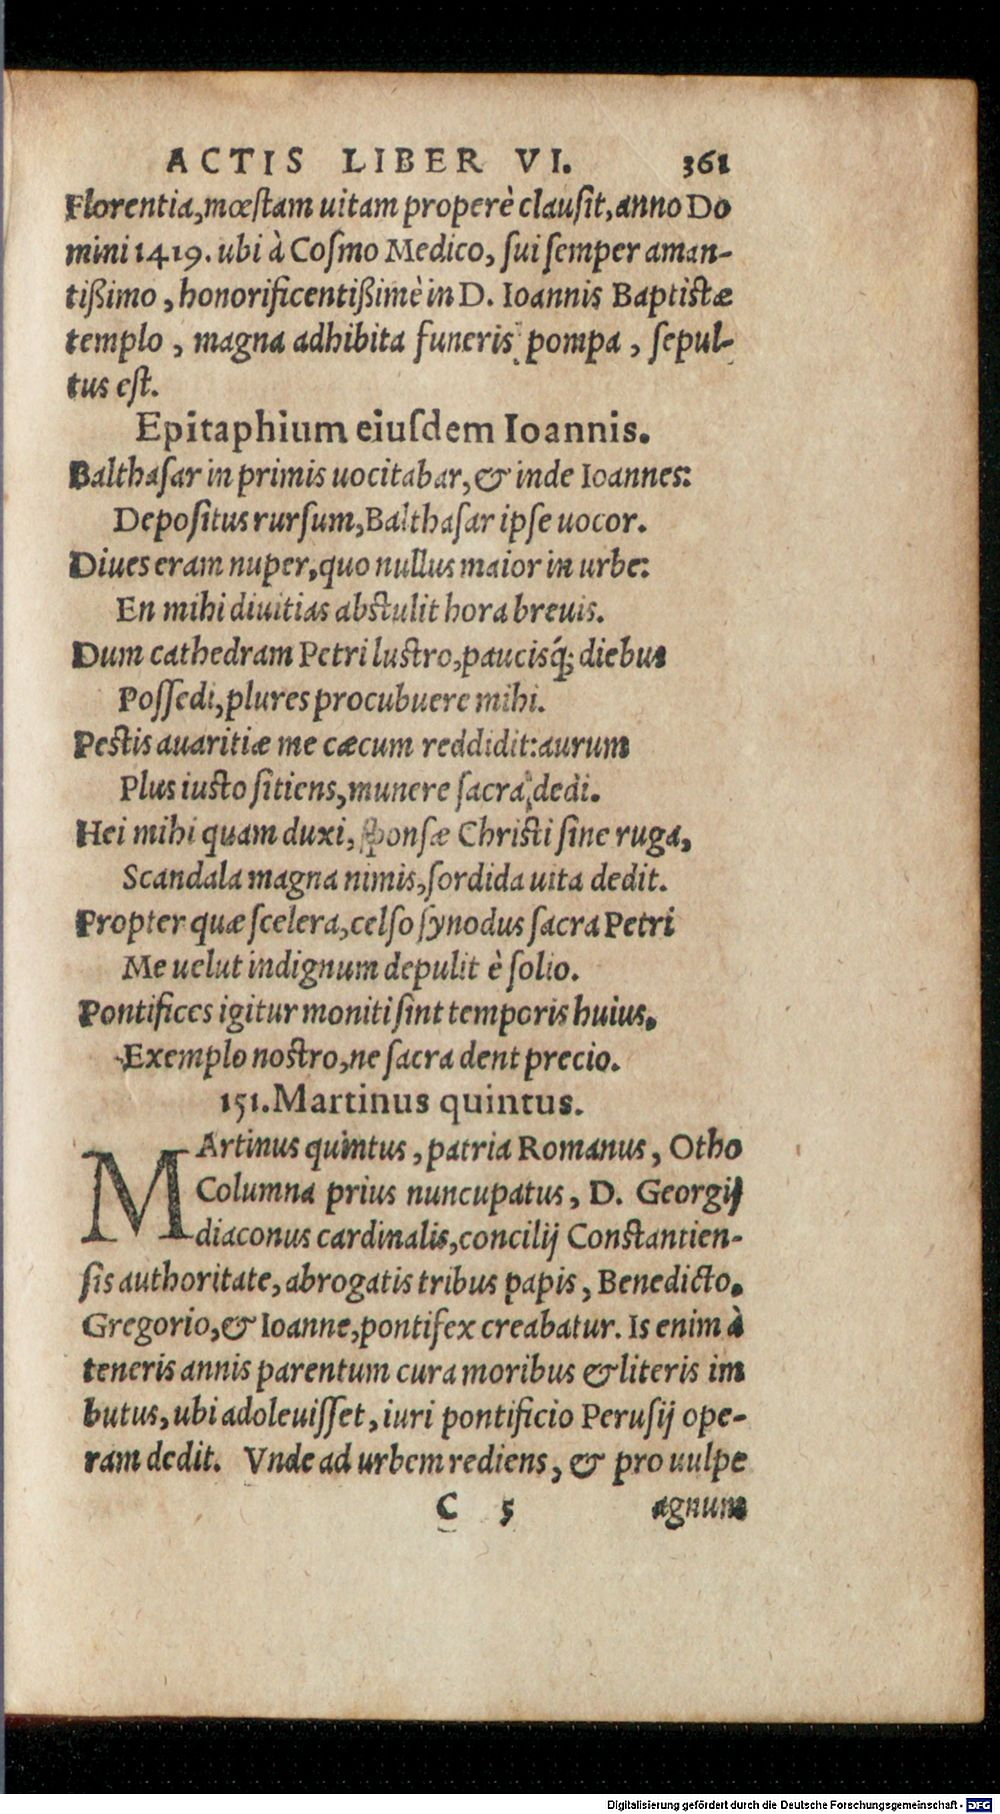 ACTIS LIBER VI. 361
Florentia, mœstam uitam properè clausit, anno Do
mini 1419. ubi à Cosmo Medico, sui semper aman-
tißimo, honorificentißimè in D. Ioannis Baptistæ
templo, magna adhibita funeris pompa, sepul-
tus est.
Epitaphium eiusdem Ioannis.
Balthasar in primis uocitabar, & inde Ioannes:
Depositus rursum, Balthasar ipse uocor.
Diues eram nuper, quo nullus maior in urbe:
En mihi diuitias abstulit hora breuis.
Dum cathedram Petri lustro, paucisq́; diebus
Possedi, plures procubuere mihi.
Pestis auaritiæ me cæcum reddidit: aurum
Plus iusto sitiens, munere sacra dedi.
Hei mihi quam duxi, sponsæ Christi sine ruga,
Scandala magna nimis, sordida uita dedit.
Propter quæ scelera, celso synodus sacra Petri
Me uelut indignum depulit è solio.
Pontifices igitur moniti sint temporis huius,
Exemplo nostro, ne sacra dent precio.
151. Martinus quintus.
MArtinus quintus, patria Romanus, Otho
Columna prius nuncupatus, D. Georgij
diaconus cardinalis, concilij Constantien-
sis authoritate, abrogatis tribus papis, Benedicto,
Gregorio, & Ioanne, pontifex creabatur. Is enim à
teneris annis parentum cura moribus & literis im
butus, ubi adoleuisset, iuri pontificio Perusij ope-
ram dedit. Vnde ad urbem rediens, & pro uulpe
C 5 agnum
Digitalisierung gefördert durch die Deutsche Forschungsgemeinschaft - DFG